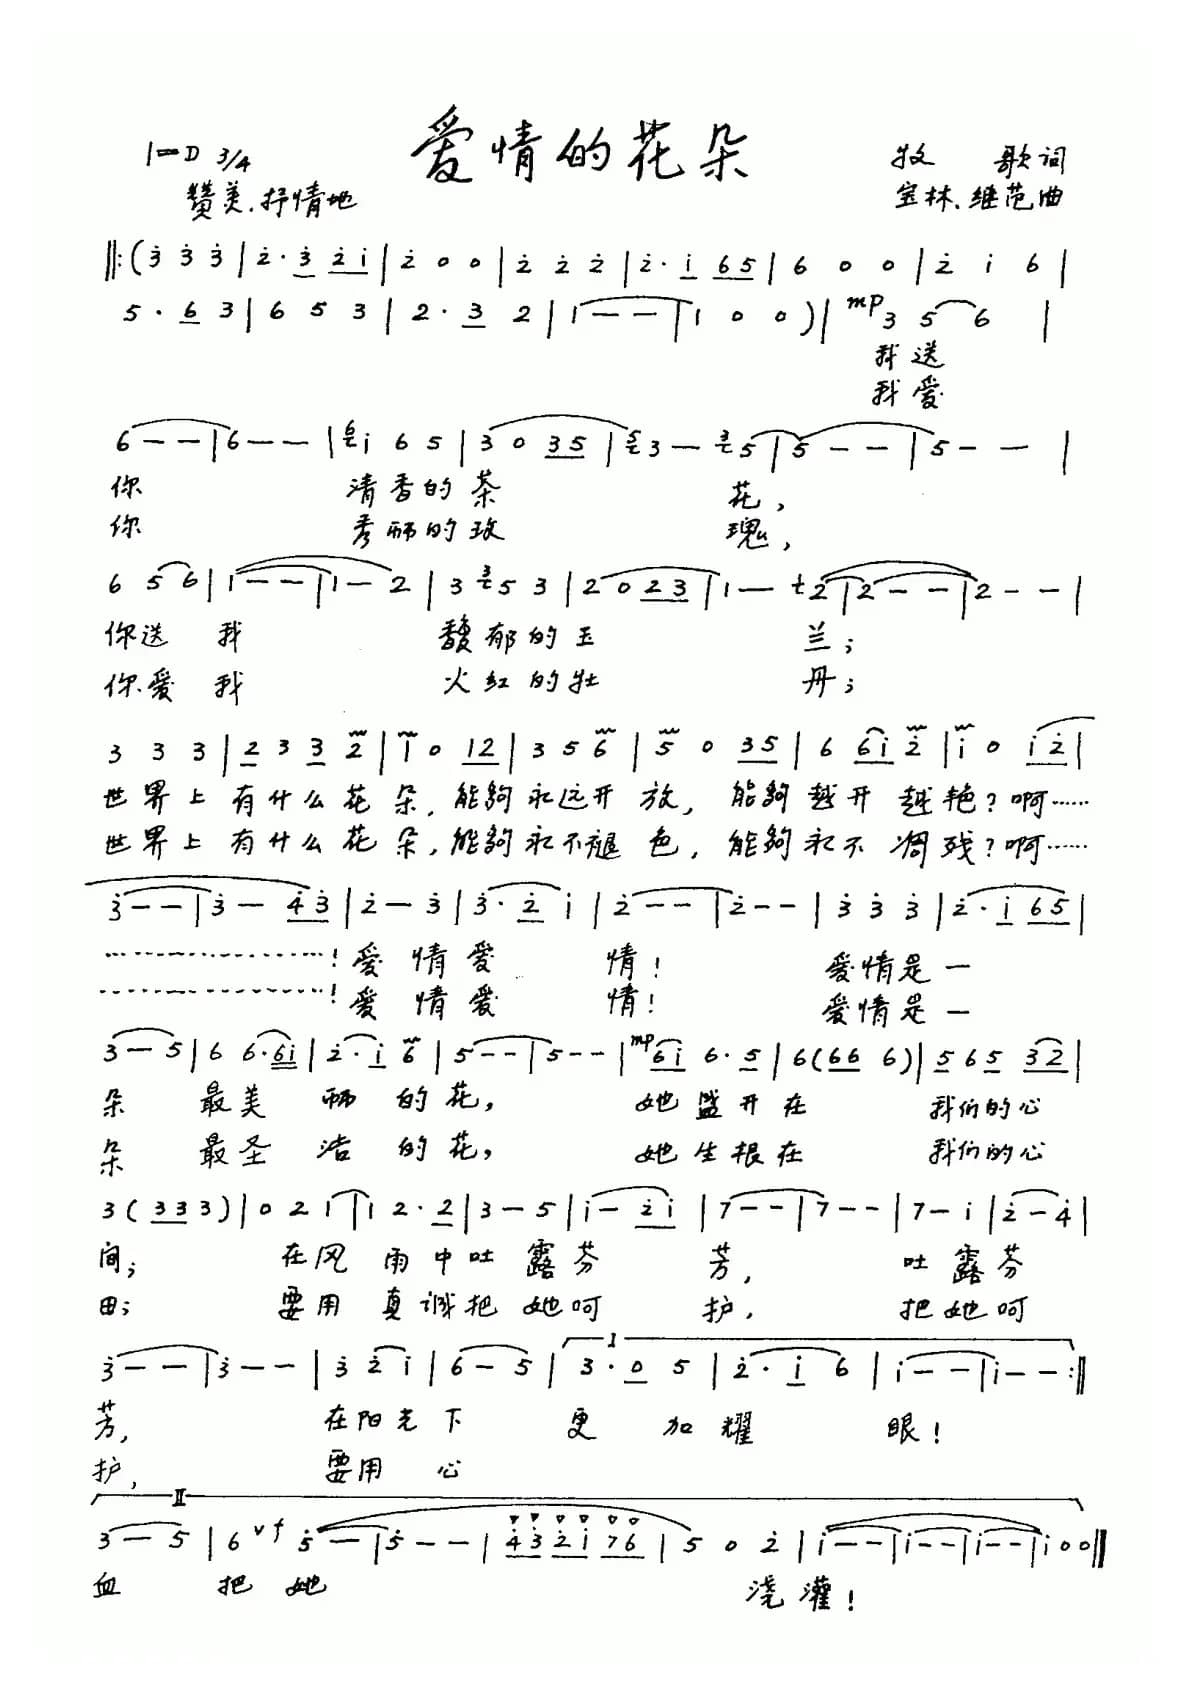 爱情的花朵
1=D 3/4
牧 歌词
赞美.抒情地
宝林、继范曲
‖:(3̇ 3̇ 3̇ | 2̇· 3̇ 2̇ 1̇ | 2̇ 0 0 | 2̇ 2̇ 2̇ | 2̇· 1̇ 6 5 | 6 0 0 | 2̇ 1̇ 6 |
5· 6 3 | 6 5 3 | 2· 3 2 | 1 - - | 1 0 0 )| mp 3 5 6 |
我送
我爱
6 - - | 6 - - | 6 1̇ 6 5 | 3 0 3 5 | 5 3 - 3 5 | 5 - - | 5 - - |
你 清香的茶 花，
你 秀丽的玫 瑰，
6 5 6 | 1 - - | 1 - 2 | 3 3 5 3 | 2 0 2 3 | 1 - 1 2 | 2 - - | 2 - - |
你送 我 馥郁的玉 兰；
你爱 我 火红的牡 丹；
3 3 3 | 2 3 3 2 | 1 0 1 2 | 3 5 6 | 5 0 3 5 | 6 6 1̇ 2̇ | 1̇ 0 1̇ 2̇ |
世界上 有什么花 朵，能够永远开 放，能够越开 越艳？啊……
世界上 有什么花 朵，能够永不褪 色，能够永不 凋残？啊……
3̇ - - | 3̇ - 4̇ 3̇ | 2̇ - 3̇ | 3̇· 2̇ 1̇ | 2̇ - - | 2̇ - - | 3̇ 3̇ 3̇ | 2̇· 1̇ 6 5 |
…………………！爱 情爱 情！ 爱情是一
…………………！爱 情爱 情！ 爱情是一
3 - 5 | 6 6· 6 1̇ | 2̇· 1̇ 6 | 5 - - | 5 - - | mp 6 1̇ 6· 5 | 6 (6 6 6) | 5 6 5 3 2 |
朵 最美 丽 的花， 她盛开在 我们的心
朵 最圣 洁 的花， 她生根在 我们的心
3 ( 3 3 3 ) | 0 2 1 | 1 2· 2 | 3 - 5 | 1̇ - 2̇ 1̇ | 7 - - | 7 - - | 7 - 1̇ | 2̇ - 4̇ |
间； 在风 雨中吐 露芬 芳， 吐 露芬
田； 要用 真诚把 她呵 护， 把她呵
3̇ - - | 3̇ - - | 3̇ 2̇ 1̇ | 6 - 5 | I 3· 0 5 | 2̇· 1̇ 6 | 1̇ - - | 1̇ - - :‖
芳， 在阳光下 更 加耀 眼！
护， 要用 心
II
3 - 5 | 6 v f 5̇ - - | 5̇ - - | 4̇ 3̇ 2̇ 1̇ 7 6 | 5 0 2̇ | 1̇ - - | 1̇ - - | 1̇ - - | 1̇ 0 0 ‖
血 把 她 浇 灌！